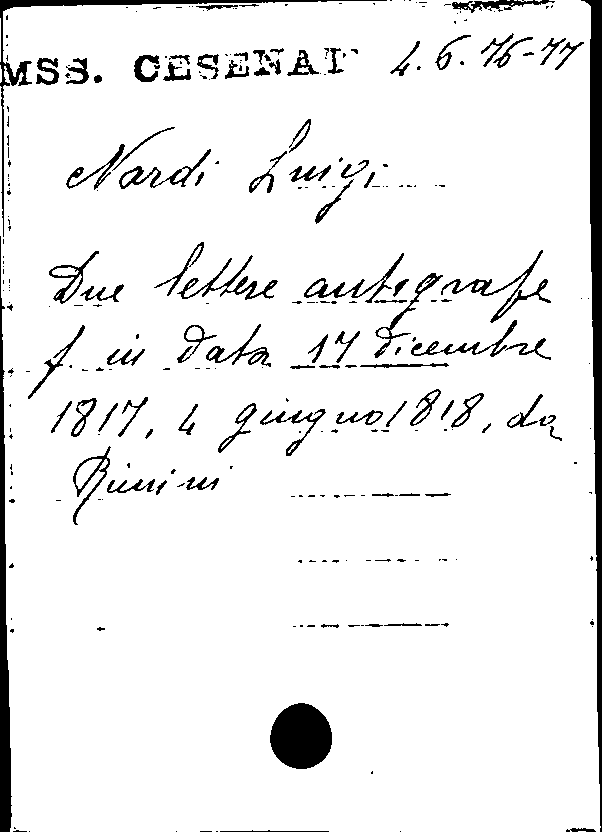 MSS. CESENAT 4.6.76-77
Nardi Luigi
Due lettere autografe
f. in data 17 dicembre
1817, 4 giugno 1818, da
Rimini